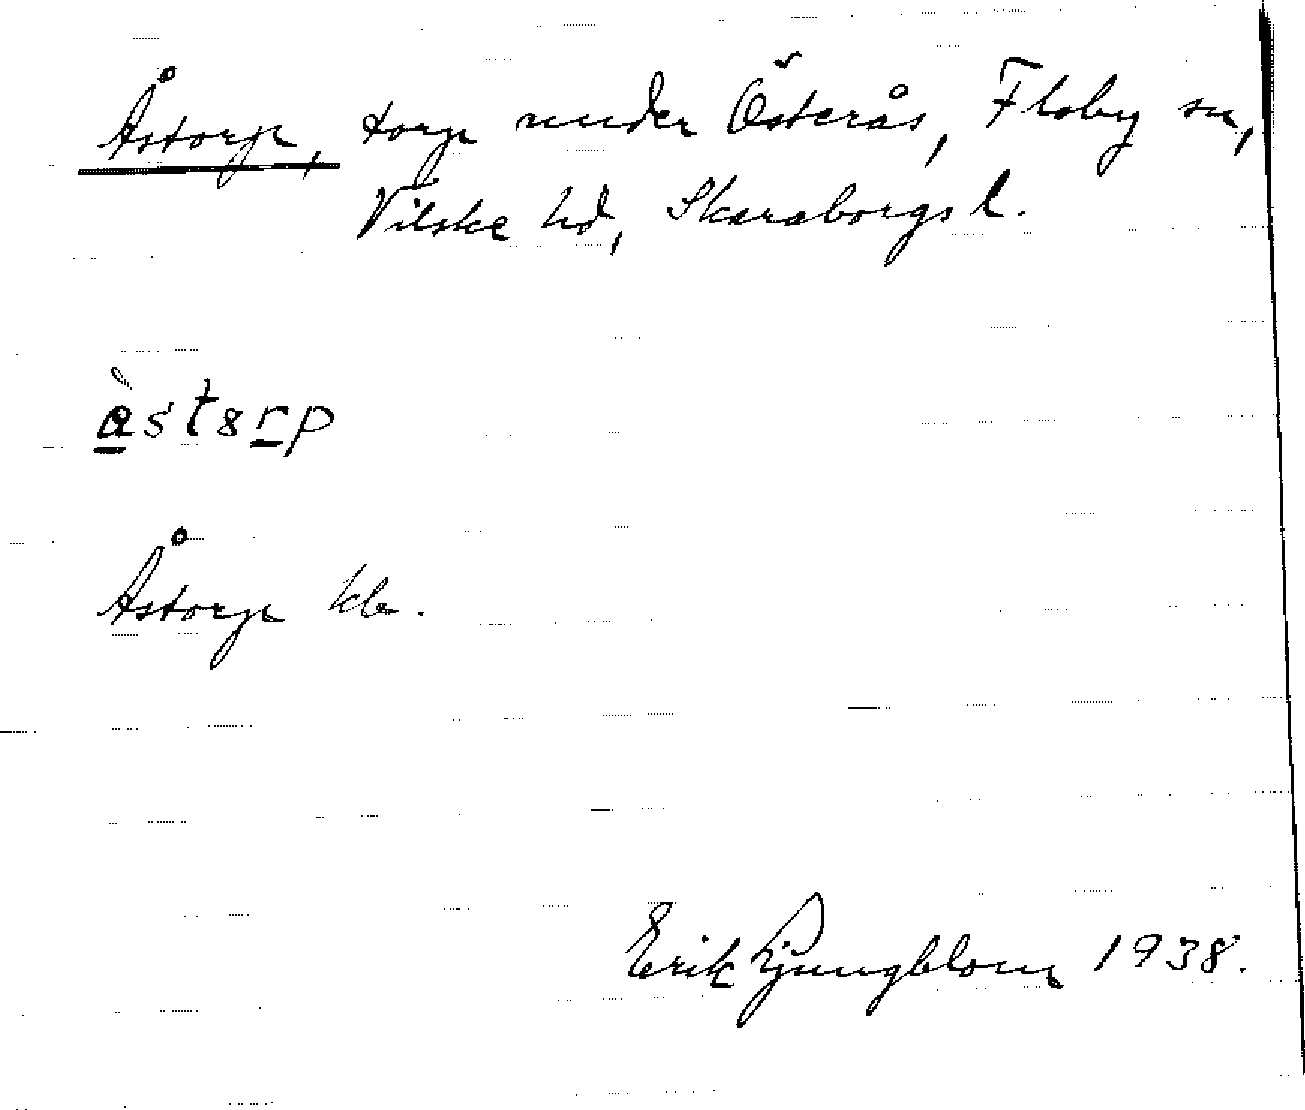 Åstorp, torp under Österås, Floby sn,
Vilske hd, Skaraborgs l.
àstȣrp
Åstorp kb.
Erik Ljungblom 1938.